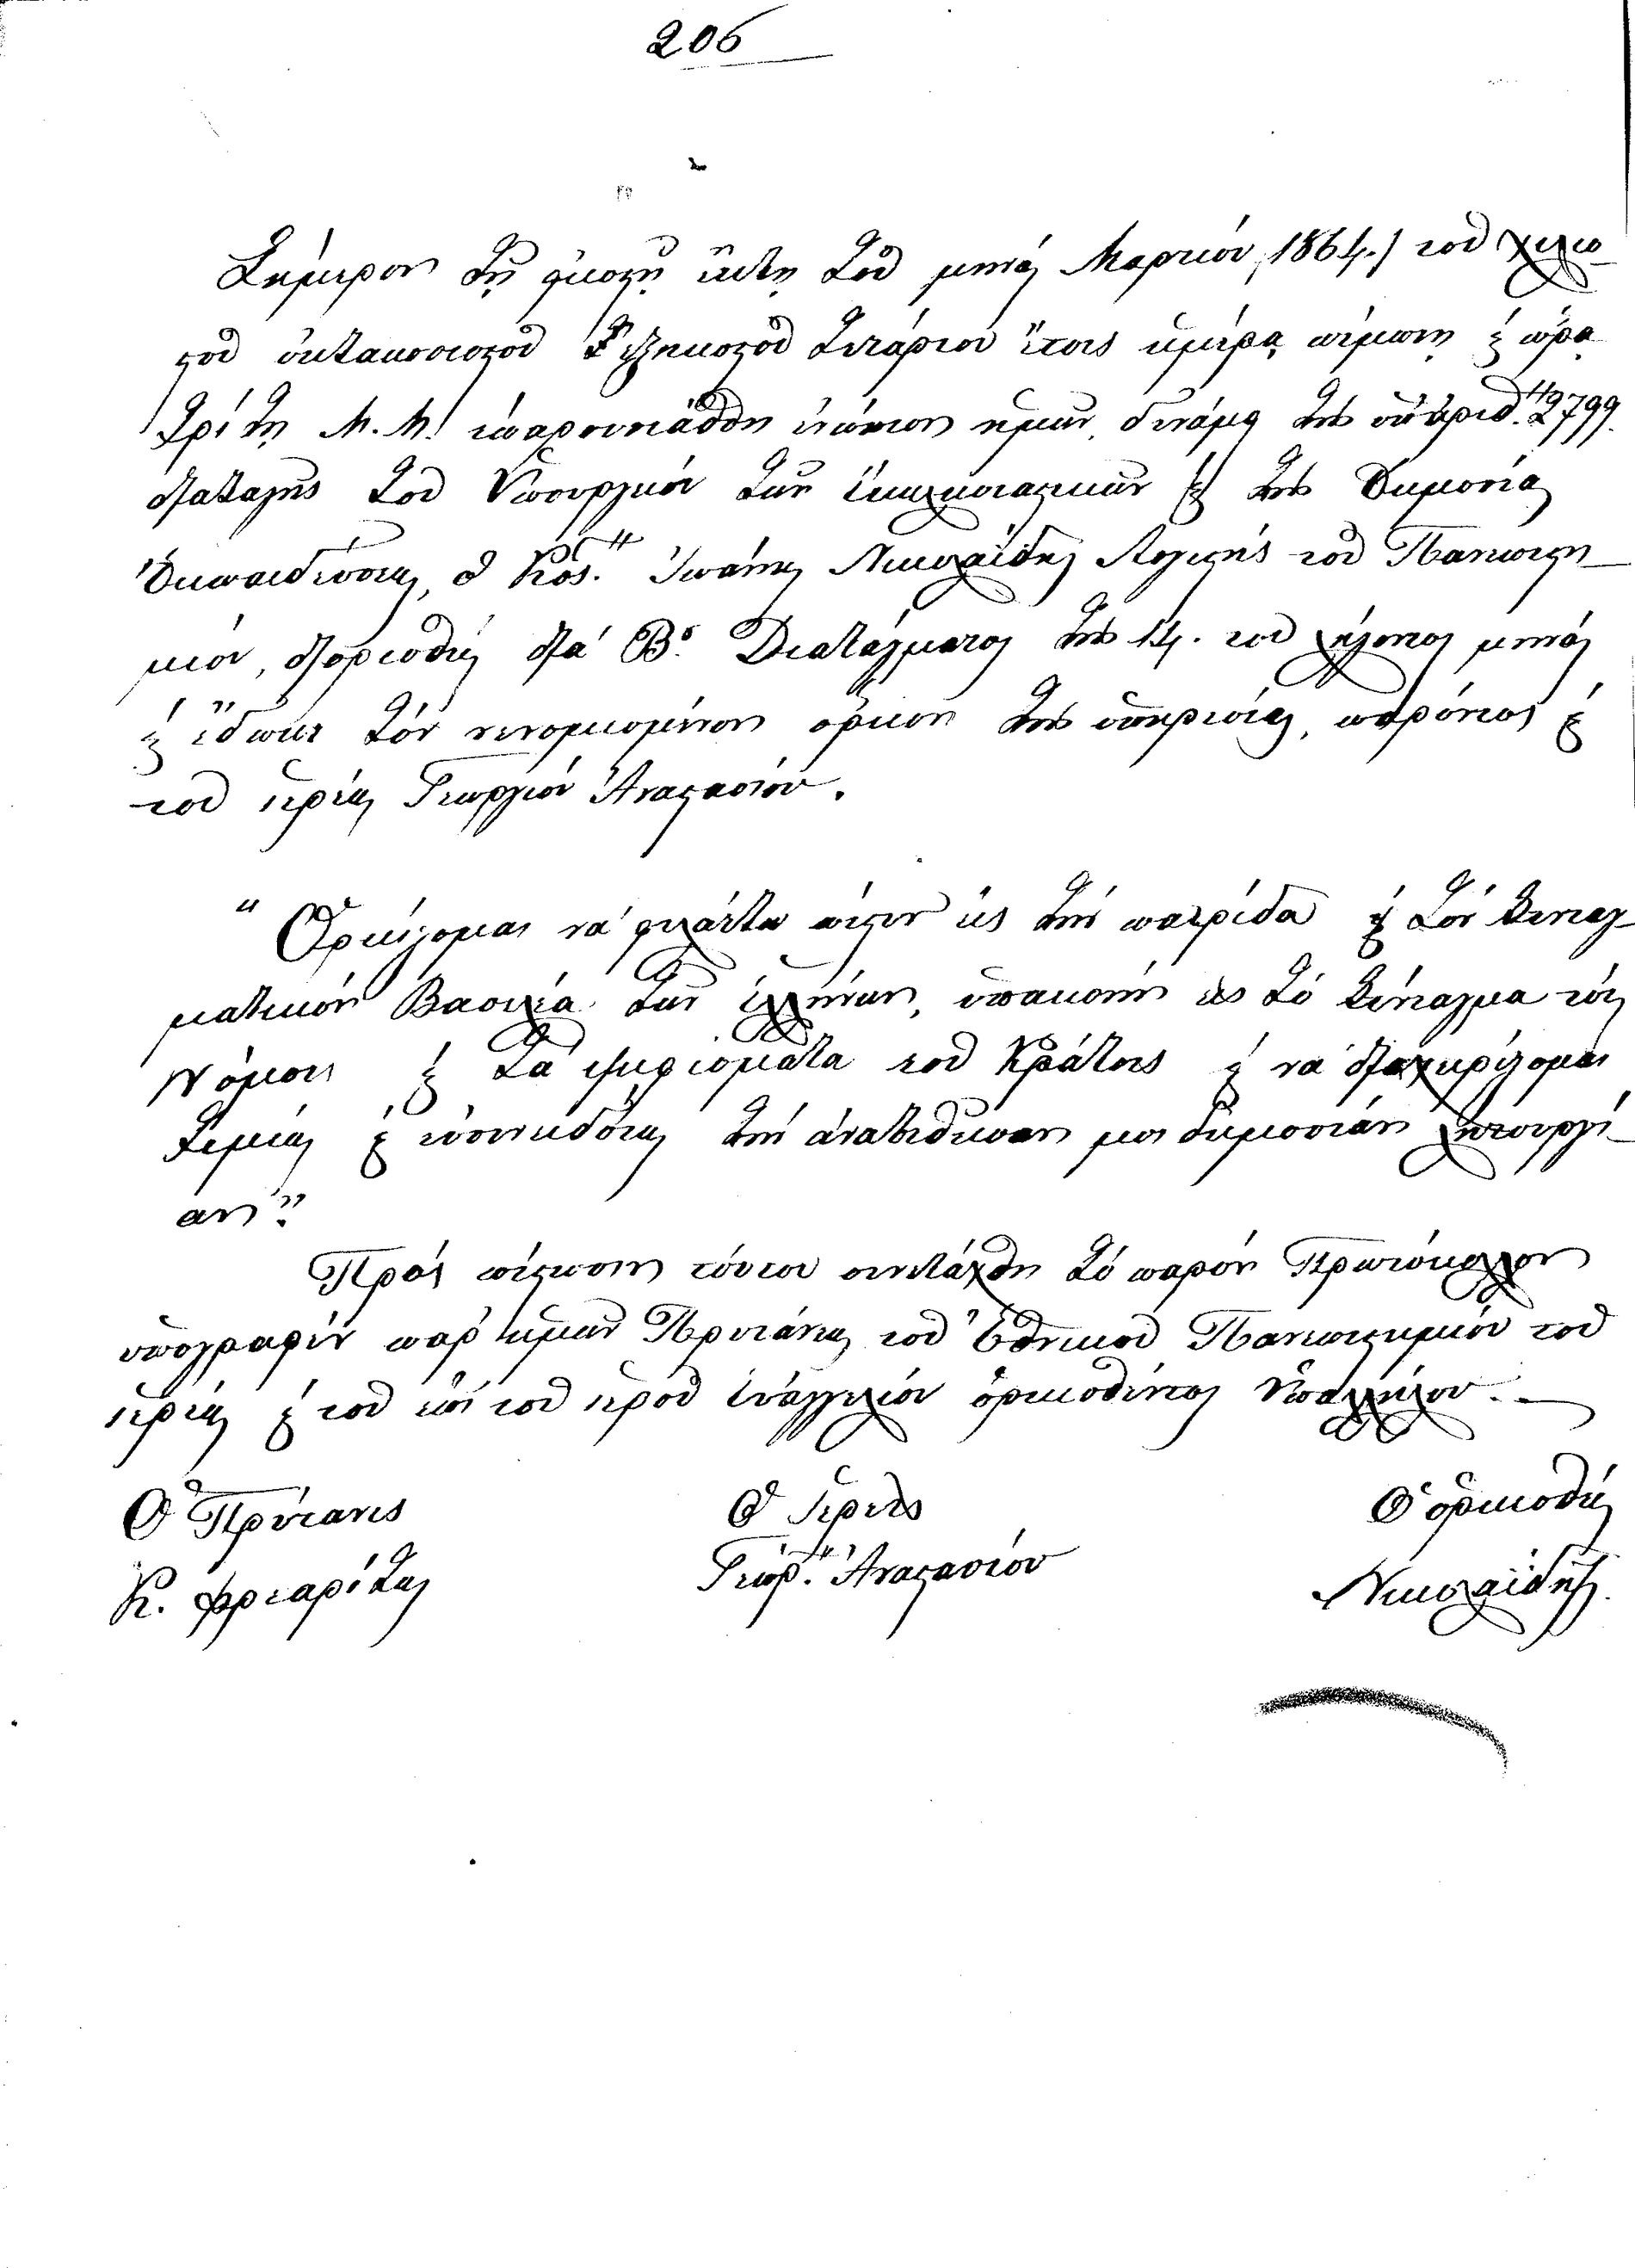 206
Σήμερον τῇ εἰκοστῇ ἕκτῃ τοῦ μηνὸς Μαρτίου (1864.) τοῦ χιλιο-
στοῦ ὀκτακοσιοστοῦ ἑξηκοστοῦ τετάρτου ἔτους ἡμέρᾳ πέμπτῃ καὶ ὥρᾳ
τρίτῃ Μ.Μ. ἐπαρουσιάσθη ἐνώπιον ἡμῶν, δυνάμει τῆς ὑπ' ἀριθ. 2799.
διαταγῆς τοῦ Ὑπουργείου τῶν Ἐκκλησιαστικῶν καὶ τῆς Δημοσίας
Ἐκπαιδεύσεως, ὁ Κος. Ἰωάννης Νικολαΐδης Λογιστὴς τοῦ Πανεπιστη-
μίου, διορισθεὶς διὰ Β. Διατάγματος τῆς 14. τοῦ λήγοντος μηνὸς
καὶ ἔδωκε τὸν νενομισμένον ὅρκον τῆς ὑπηρεσίας, παρόντος καὶ
τοῦ ἱερέως Γεωργίου Ἀναστασίου.
"Ὁρκίζομαι νὰ φυλάττω πίστιν εἰς τὴν πατρίδα καὶ τὸν Συνταγ-
ματικὸν Βασιλέα τῶν Ἑλλήνων, ὑπακοὴν εἰς τὸ Σύνταγμα τοὺς
Νόμους καὶ τὰ ψηφίσματα τοῦ Κράτους καὶ νὰ διαχειρίζομαι
τιμίως καὶ εὐσυνειδότως τὴν ἀνατεθεῖσαν μοι δημοσίαν λειτουργί-
αν".
Πρὸς πίστωσιν τούτου συνετάχθη τὸ παρὸν Πρωτόκολλον
ὑπογραφὲν παρ' ἡμῶν Πρυτάνεως τοῦ Ἐθνικοῦ Πανεπιστημίου τοῦ
ἱερέως καὶ τοῦ ἐπὶ τοῦ ἱεροῦ Εὐαγγελίου ὁρκισθέντος Ὑπαλλήλου. -
Ὁ Πρύτανις
Ὁ Ἱερεὺς
Ὁ ὁρκισθεὶς
Κ. Φρεαρίτης
Γεώρ. Ἀναστασίου
Νικολαΐδης.